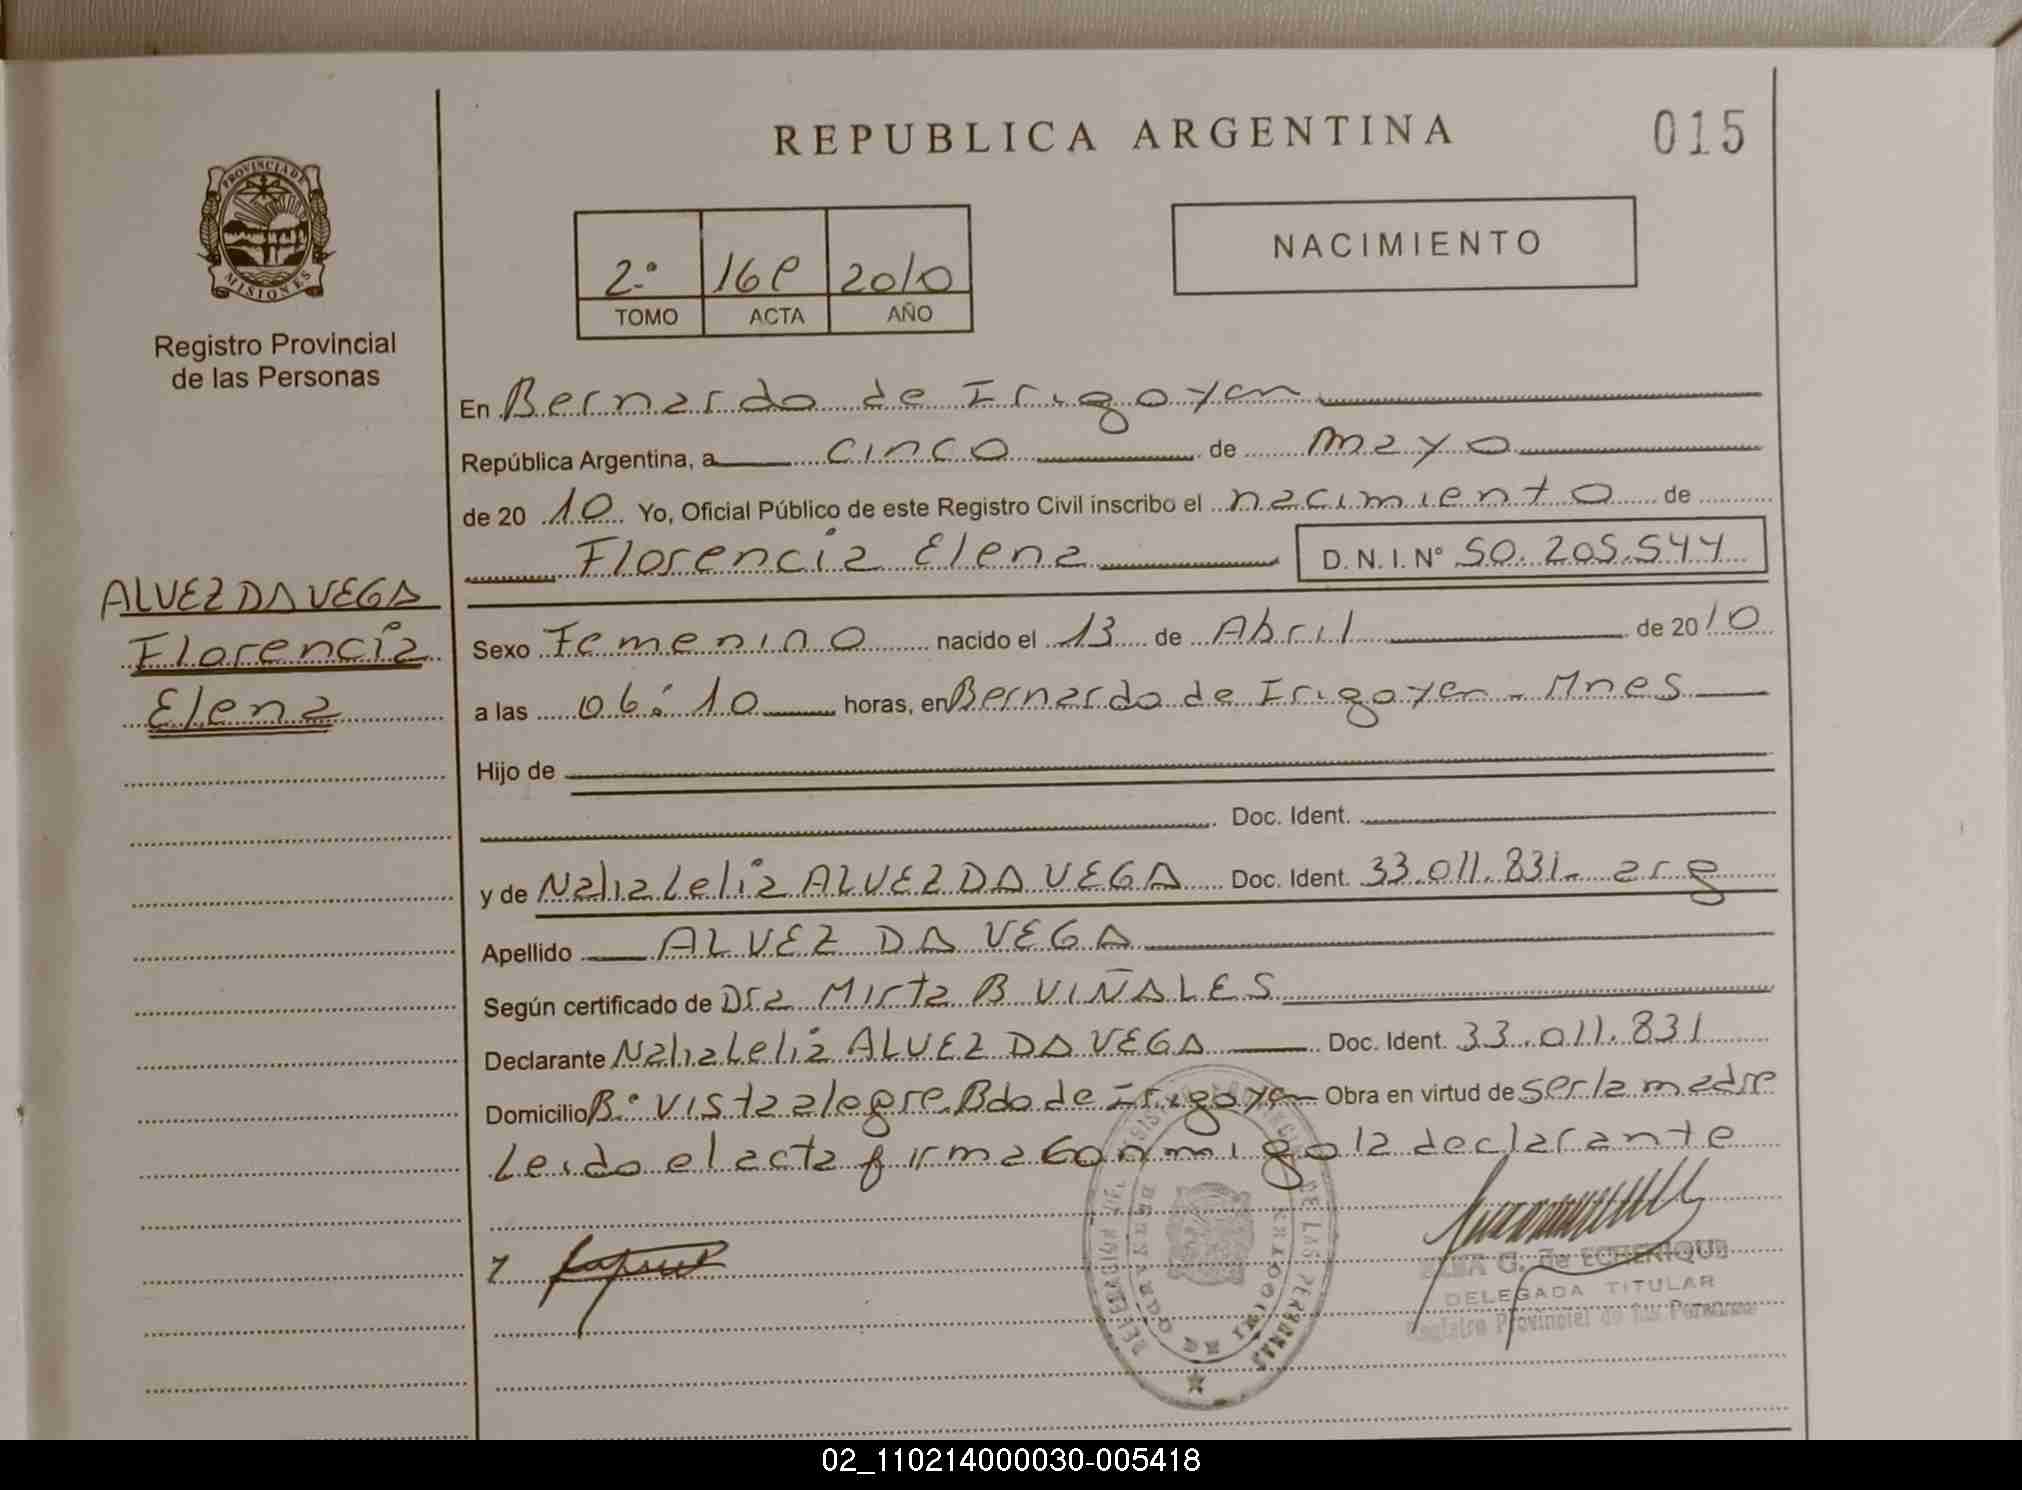 REPUBLICA ARGENTINA
015
PROVINCIA DE
MISIONES
Registro Provincial
de las Personas
NACIMIENTO
2º 2010
TOMO ACTA AÑO
En Bernardo de Irigoyen
República Argentina, a cinco de mayo
de 2010 Yo, Oficial Público de este Registro Civil inscribo el nacimiento de
Florencia Elena D.N.I.Nº 50.205.544
ALVEZ DA VEGA
Florencia
Elena
Sexo Femenino nacido el 13 de Abril de 2010
a las 06:10 horas, en Bernardo de Irigoyen - Mnes
Hijo de
Doc. Ident.
y de Nalia Lelia ALVEZ DA VEGA Doc. Ident. 33.011.831- arg
Apellido ALVEZ DA VEGA
Según certificado de Dra Mirta B VIÑALES
Declarante Nalia Lelia ALVEZ DA VEGA Doc. Ident. 33.011.831
Domicilio Bº Vista alegre Bdo de Irigoyen Obra en virtud de ser la madre
Leido el acta firma conmigo la declarante
G. de ECHENIQUE
DELEGADA TITULAR
Registro Provincial de las Personas
02_110214000030-005418